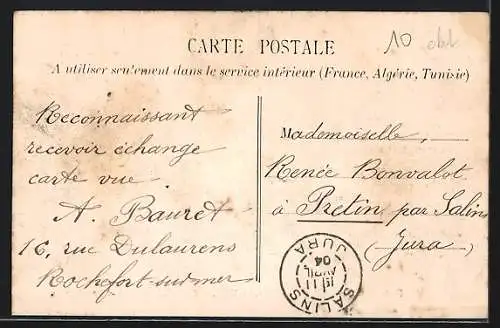 10
CARTE POSTALE
A utiliser seulement dans le service intérieur (France, Algérie, Tunisie)
Reconnaissant
recevoir échange
carte vue -
A. Bauret
16, rue Dulaurens
Rochefort-sur-mer
Mademoiselle,
Renée Bonvalot
à Pretin par Salins
(Jura)
SALINS
11
AVRIL
04
JURA